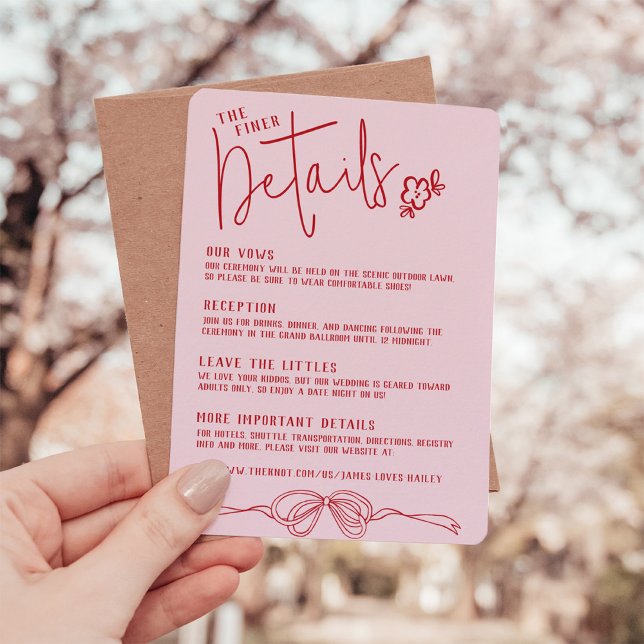 THE
FINER
Details
OUR VOWS
OUR CEREMONY WILL BE HELD ON THE SCENIC OUTDOOR LAWN,
SO PLEASE BE SURE TO WEAR COMFORTABLE SHOES!
RECEPTION
JOIN US FOR DRINKS, DINNER, AND DANCING FOLLOWING THE
CEREMONY IN THE GRAND BALLROOM UNTIL 12 MIDNIGHT.
LEAVE THE LITTLES
WE LOVE YOUR KIDDOS, BUT OUR WEDDING IS GEARED TOWARD
ADULTS ONLY, SO ENJOY A DATE NIGHT ON US!
MORE IMPORTANT DETAILS
FOR HOTELS, SHUTTLE TRANSPORTATION, DIRECTIONS, REGISTRY
INFO AND MORE, PLEASE VISIT OUR WEBSITE AT:
WWW.THEKNOT.COM/US/JAMES-LOVES-HAILEY